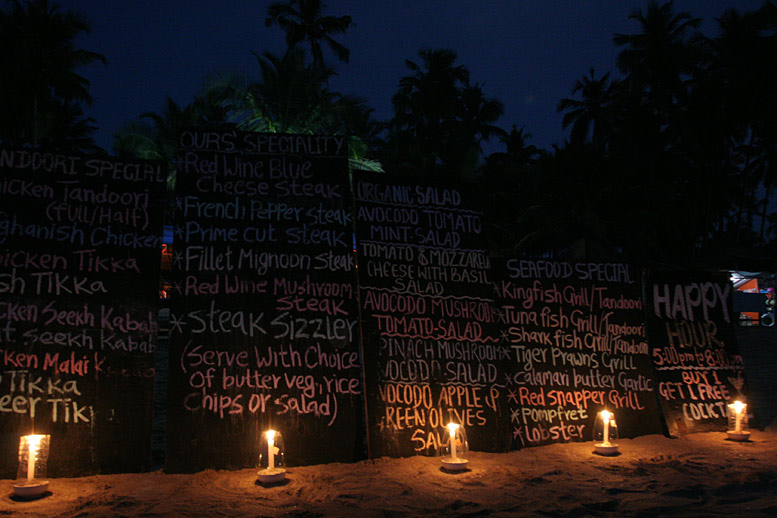 NDOORI SPECIAL
hicken Tandoori
(Full/Half)
ghanish Chicken
icken Tikka
sh Tikka
icken Seekh Kabab
at Seekh Kabab
icken Malai K
Tikka
eer Tik
OURS' SPECIALITY
*Red Wine Blue
Cheese steak
*French Pepper steak
*Prime cut steak
*Fillet Mignoon steak
*Red Wine Mushroom
Steak
*Steak Sizzler
(Serve With Choice
of butter veg, rice
Chips or salad)
ORGANIC SALAD
AVOCODO TOMATO
MINT SALAD
TOMATO & MOZZAREA
CHEESE WITH BASIL
SALAD
AVOCODO MUSHROOM
TOMATO-SALAD
SPINACH MUSHROOM
AVOCODO SALAD
AVOCODO APPLE &
GREEN OLIVES
SAL
SEAFOOD SPECIAL
*Kingfish Grill/Tandoori
*Tuna fish Grill/Tandoori
*Shark fish Grill/Tandoori
*Tiger Prawns Grill
*Calamari putter Garlic
*Red Snapper Grill
*Pompfret
*Lobster
HAPPY
HOUR
5:00pm to 8:00pm
BUY 1
GET 1 FREE
COCKT